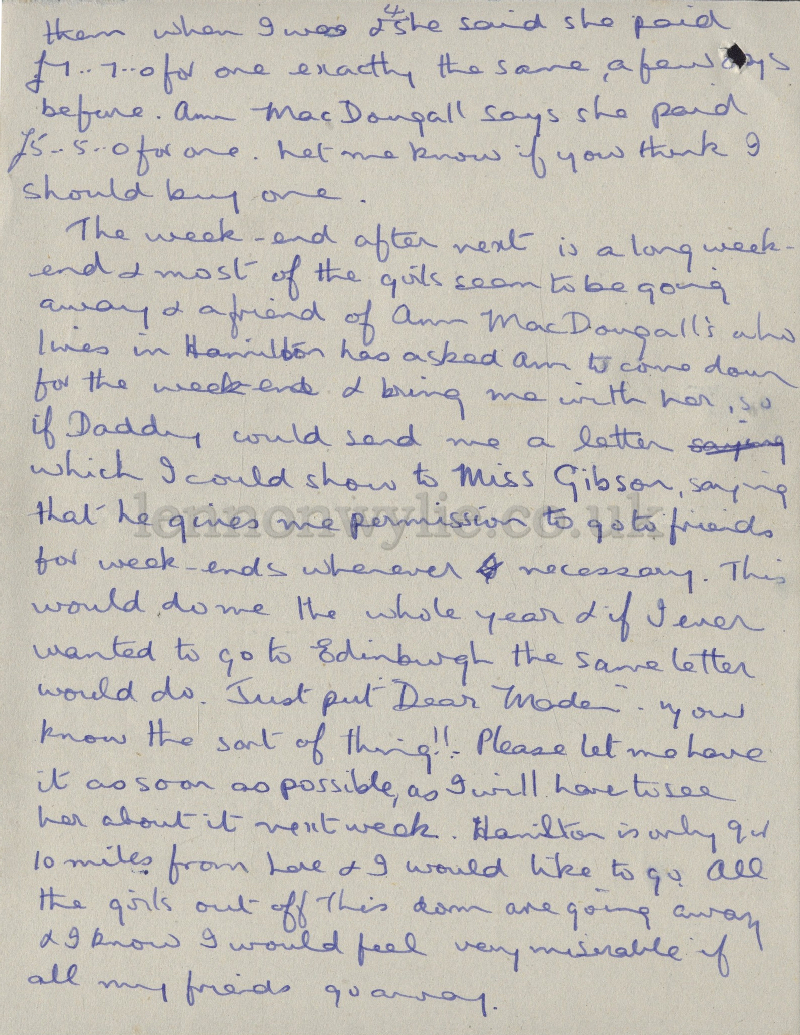 them when I was & she said she paid
£7..7..0 for one exactly the same, a few days
before. Ann MacDougall says she paid
£5..5..0 for one. Let me know if you think I
should buy one.
The week-end after next is a long week-
end & most of the girls seem to be going
away & a friend of Ann MacDougall's who
lives in Hamilton has asked Ann to come down
for the week-end & bring me with her, so
if Daddy could send me a letter saying
which I could show to Miss Gibson, saying
that he gives me permission to go to friends
for week-ends whenever necessary. This
would do me the whole year & if I ever
wanted to go to Edinburgh the same letter
would do. Just put "Dear Madam" - you
know the sort of thing!!. Please let me have
it as soon as possible, as I will have to see
her about it next week. Hamilton is only
10 miles from here & I would like to go. All
the girls out off this dorm are going away
& I know I would feel very miserable if
all my frieds go away.
lennonwylie.co.uk